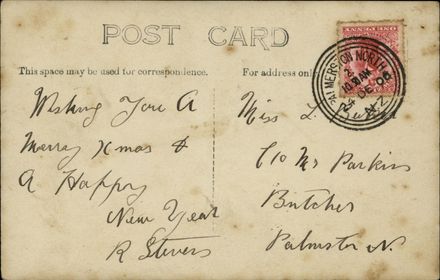 POST CARD
This space may be used for correspondence.
For address only
Wishing You A
Merry Xmas &
A Happy
New Year
R Stevens
Miss L.
C/o Mr Parkins
Butcher
Palmston N.
PALMERSTON NORTH
2
10 30 AM
24 DE 06
N.Z
ONE PENNY